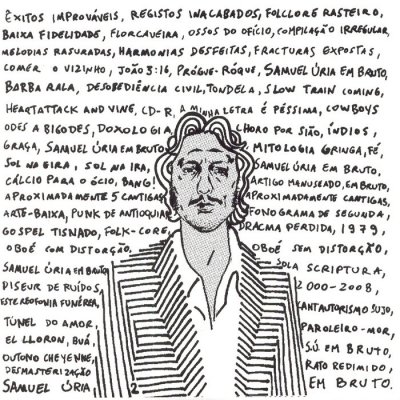 ÊXITOS IMPROVÁVEIS, REGISTOS INACABADOS, FOLCLORE RASTEIRO,
BAIXA FIDELIDADE, FLORCAVEIRA, OSSOS DO OFÍCIO, COMPILAÇÃO IRREGULAR,
MELODIAS RASURADAS, HARMONIAS DESFEITAS, FRACTURAS EXPOSTAS,
COMER O VIZINHO, JOÃO 3:16, PRÓGUE-RÓQUE, SAMUEL ÚRIA EM BRUTO,
BARBA RALA, DESOBEDIÊNCIA CIVIL, TONDELA, SLOW TRAIN COMING,
HEARTATTACK AND VINE, CD-R, A MINHA LETRA É PÉSSIMA, COWBOYS
ODES A BIGODES, DOXOLOGIA CHORO POR SIÃO, ÍNDIOS,
GRAÇA, SAMUEL ÚRIA EM BRUTO MITOLOGIA GRINGA, FÉ,
SOL NA EIRA, SOL NA IRA, SAMUEL ÚRIA EM BRUTO,
CÁLCIO PARA O ÓCIO, BANG! ARTIGO MANUSEADO, EM BRUTO,
APROXIMADAMENTE 5 CANTIGAS APROXIMADAMENTE CANTIGAS,
ARTE-BAIXA, PUNK DE ANTIOQUIA FONOGRAMA DE SEGUNDA,
GOSPEL TISNADO, FOLK-CORE, DRACMA PERDIDA, 1979,
OBOÉ COM DISTORÇÃO, OBOÉ SEM DISTORÇÃO,
SAMUEL ÚRIA EM BRUTO SOLA SCRIPTURA,
DISEUR DE RUÍDOS, 2000-2008,
ESTEREOFONIA FUNÉREA, CANTAUTORISMO SUJO,
TÚNEL DO AMOR, PAROLEIRO-MOR,
EL LLORON, BUÁ, S.Ú. EM BRUTO,
OUTONO CHEYENNE, RATO REDIMIDO,
DESMASTERIZAÇÃO
SAMUEL ÚRIA, 2 EM BRUTO.